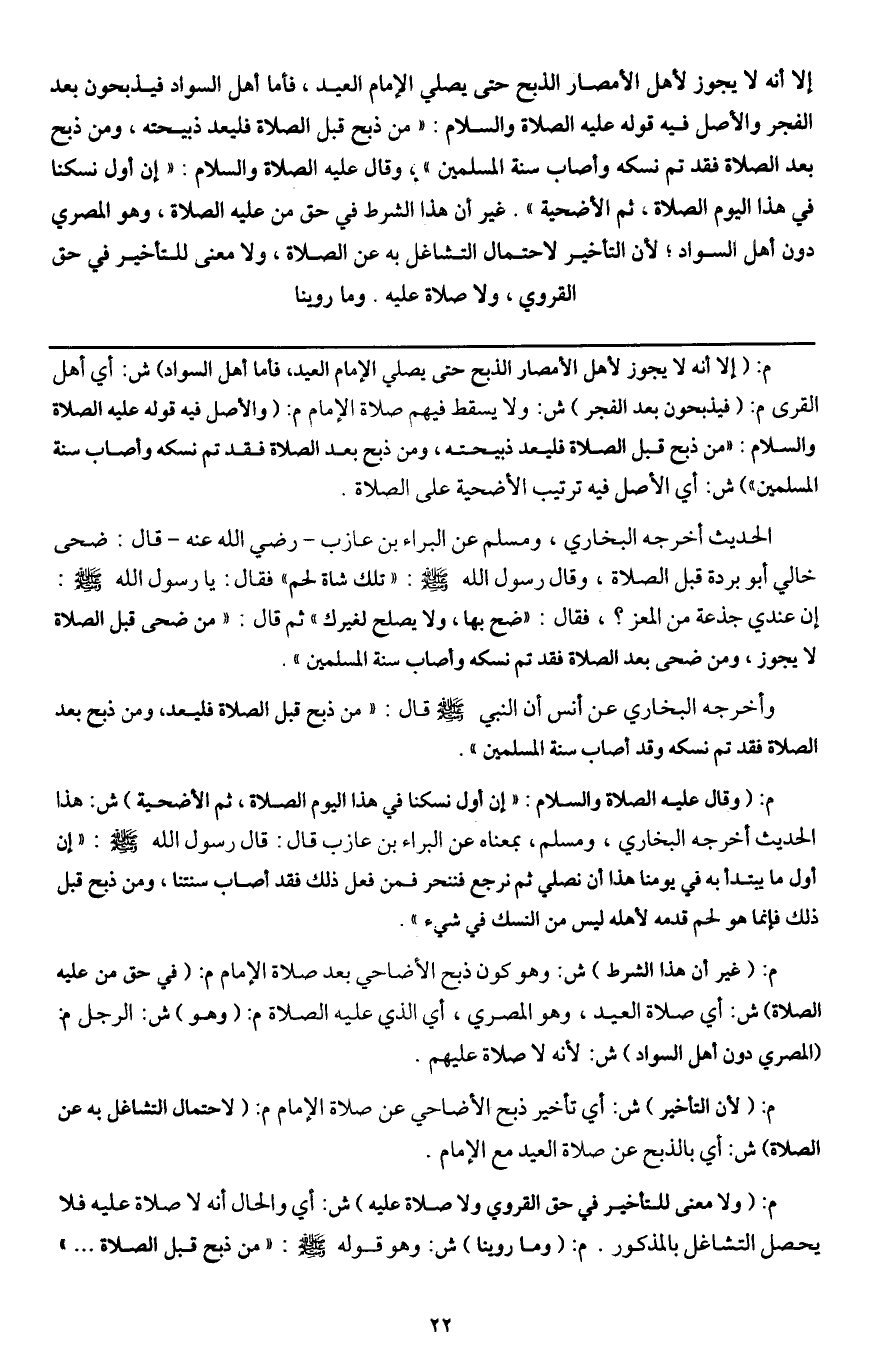 إلا أنه لا يجوز لأهل الأمصار الذبح حتى يصلي الإمام العيد ، فأما أهل السواد فيذبحون بعد
الفجر والأصل فيه قوله عليه الصلاة والسلام : « من ذبح قبل الصلاة فليعد ذبيحته ، ومن ذبح
بعد الصلاة فقد تم نسكه وأصاب سنة المسلمين » ، وقال عليه الصلاة والسلام : « إن أول نسكنا
في هذا اليوم الصلاة ، ثم الأضحية » . غير أن هذا الشرط في حق من عليه الصلاة ، وهو المصري
دون أهل السواد ؛ لأن التأخير لاحتمال التشاغل به عن الصلاة ، ولا معنى للتأخير في حق
القروي ، ولا صلاة عليه . وما روينا
م: ( إلا أنه لا يجوز لأهل الأمصار الذبح حتى يصلي الإمام العيد، فأما أهل السواد) ش: أي أهل
القرى م: ( فيذبحون بعد الفجر ) ش: ولا يسقط فيهم صلاة الإمام م: ( والأصل فيه قوله عليه الصلاة
والسلام : «من ذبح قبل الصلاة فليعد ذبيحته ، ومن ذبح بعد الصلاة فقد تم نسكه وأصاب سنة
المسلمين») ش: أي الأصل فيه ترتيب الأضحية على الصلاة .
الحديث أخرجه البخاري ، ومسلم عن البراء بن عازب - رضي الله عنه - قال : ضحى
خالي أبو بردة قبل الصلاة ، وقال رسول الله ﷺ : « تلك شاة لحم» فقال: يا رسول الله ﷺ :
إن عندي جذعة من المعز ؟ ، فقال : «ضح بها ، ولا يصلح لغيرك » ثم قال : « من ضحى قبل الصلاة
لا يجوز ، ومن ضحى بعد الصلاة فقد تم نسكه وأصاب سنة المسلمين » .
وأخرجه البخاري عن أنس أن النبي ﷺ قال : « من ذبح قبل الصلاة فليعد، ومن ذبح بعد
الصلاة فقد تم نسكه وقد أصاب سنة المسلمين » .
م: ( وقال عليه الصلاة والسلام : « إن أول نسكنا في هذا اليوم الصلاة ، ثم الأضحية ) ش: هذا
الحديث أخرجه البخاري ، ومسلم، بمعناه عن البراء بن عازب قال: قال رسول الله ﷺ : « إن
أول ما يبتدأ به في يومنا هذا أن نصلي ثم نرجع فننحر فمن فعل ذلك فقد أصاب سنتنا ، ومن ذبح قبل
ذلك فإنما هو لحم قدمه لأهله ليس من النسك في شيء » .
م: ( غير أن هذا الشرط ) ش: وهو كون ذبح الأضاحي بعد صلاة الإمام م: ( في حق من عليه
الصلاة) ش: أي صلاة العيد ، وهو المصري ، أي الذي عليه الصلاة م: ( وهو ) ش: الرجل م:
(المصري دون أهل السواد ) ش: لأنه لا صلاة عليهم .
م: ( لأن التأخير ) ش: أي تأخير ذبح الأضاحي عن صلاة الإمام م: ( لاحتمال التشاغل به عن
الصلاة) ش: أي بالذبح عن صلاة العيد مع الإمام .
م: ( ولا معنى للتأخير في حق القروي ولا صلاة عليه ) ش: أي والحال أنه لا صلاة عليه فلا
يحصل التشاغل بالمذكور . م: ( وما روينا ) ش: وهو قوله ﷺ : « من ذبح قبل الصلاة ... »
٢٢